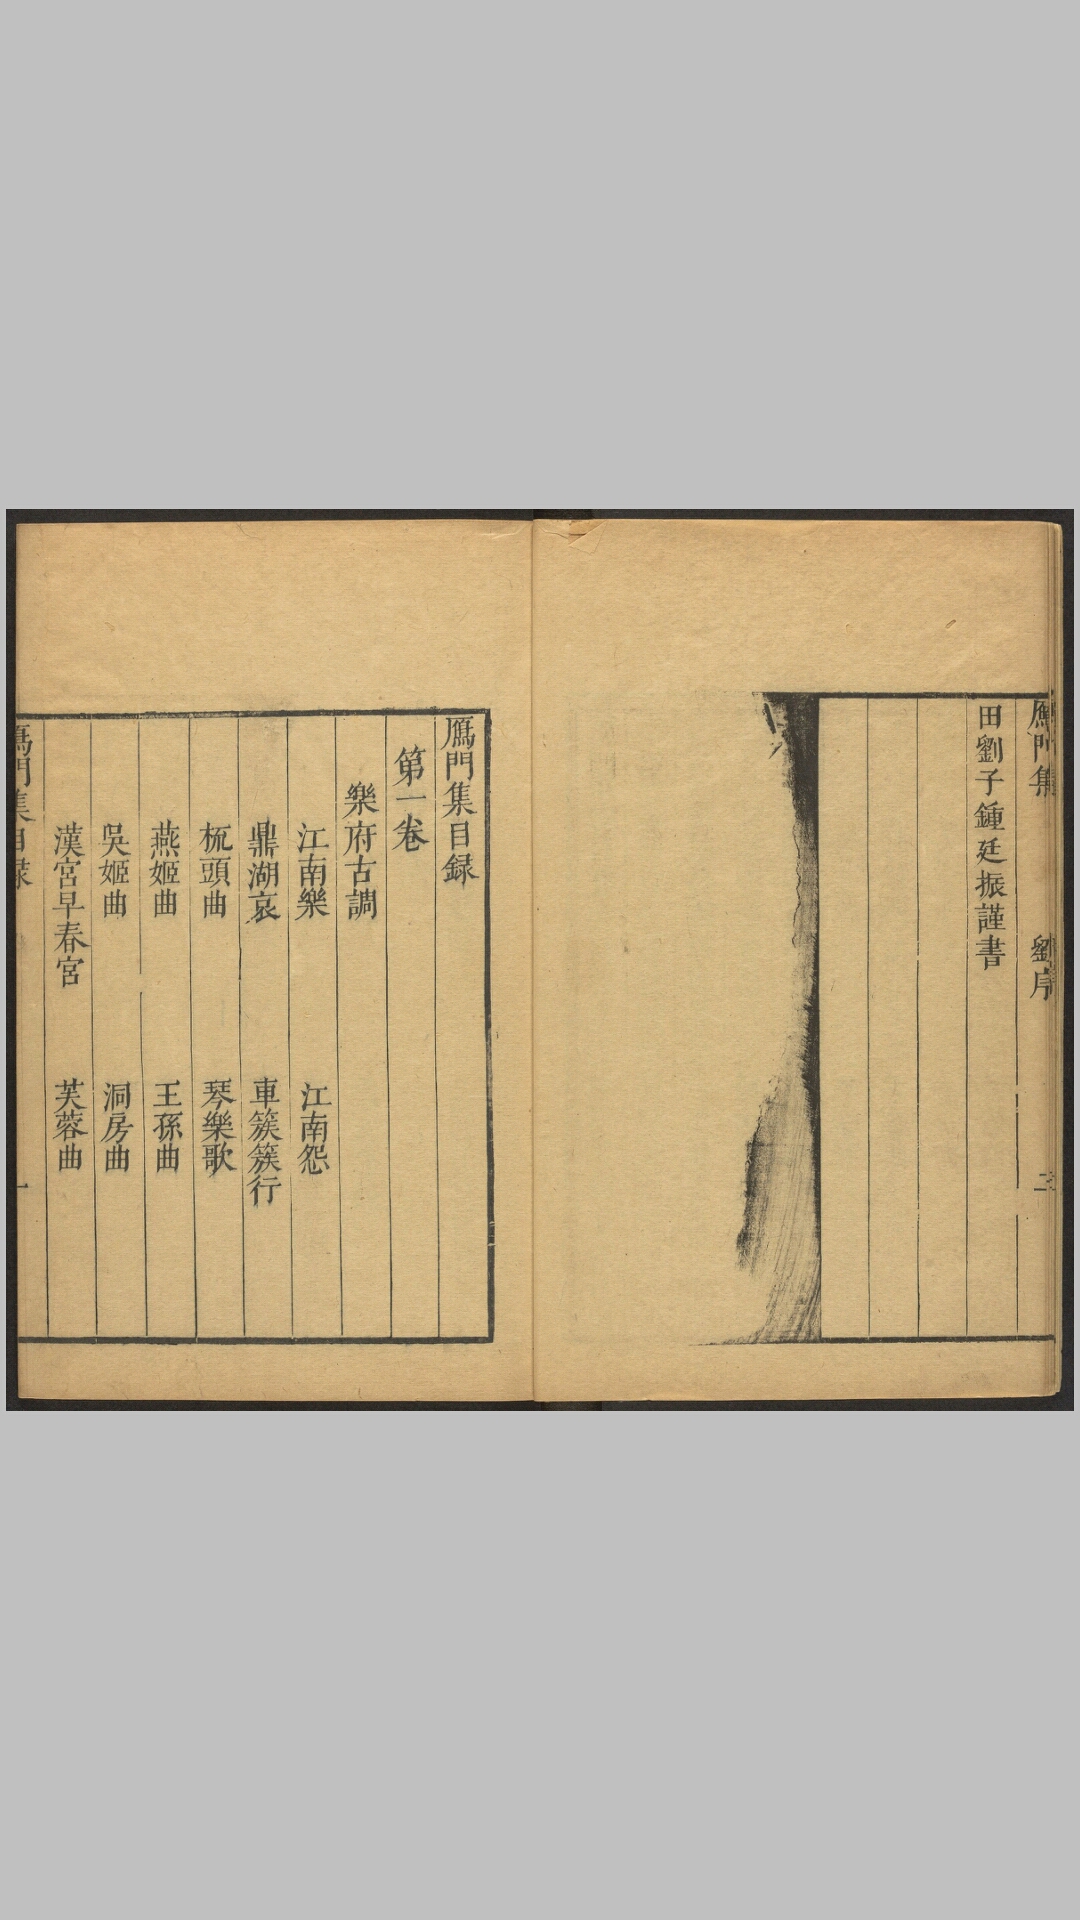 鴈門集 劉序 二
田劉子鍾廷振謹書
鴈門集目録
第一卷
樂府古調
江南樂 江南怨
鼎湖哀 車簇簇行
梳頭曲 琴樂歌
燕姬曲 王孫曲
吳姬曲 洞房曲
漢宮早春宮 芙蓉曲
鴈門集目録 一